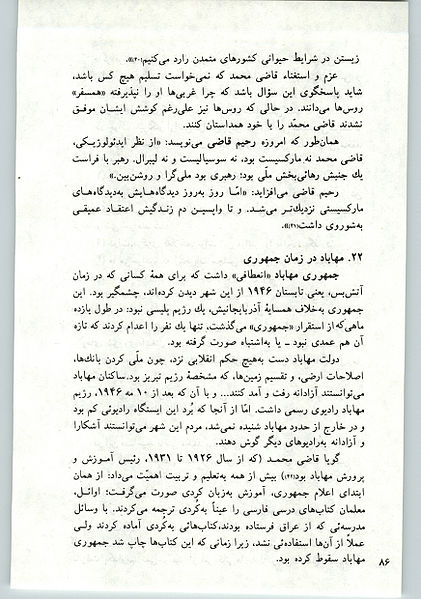 زیستن در شرایط حیوانی کشورهای متمدن را رد می‌کنیم(۲۰)».
عزم و استغناء قاضی محمد که نمی‌خواست تسلیم هیچ کس باشد،
شاید پاسخگوی این سؤال باشد که چرا غربی‌ها او را نپذیرفته «همسفر»
روس‌ها می‌دانند. در حالی که روس‌ها نیز علی‌رغم کوشش ایشان موفق
نشدند قاضی محمّد را با خود همداستان کنند.
همان‌طور که امروزه رحیم قاضی می‌نویسد: «از نظر ایدئولوژیکی،
قاضی محمد نه مارکسیست بود، نه سوسیالیست و نه لیبرال. رهبر با فراست
یك جنبش رهائی‌بخش ملّی بود؛ رهبری بود ملی‌گرا و روشن‌بین.»
رحیم قاضی می‌افزاید: «امّا روز به‌روز دیدگاه‌هایش به‌دیدگاه‌های
مارکسیستی نزدیك‌تر می‌شد. و تا واپسین دم زندگیش اعتقاد عمیقی
به‌شوروی داشت(۲۱)».
۲۲. مهاباد در زمان جمهوری
جمهوری مهاباد «انعطافی» داشت که برای همهٔ کسانی که در زمان
آتش‌بس، یعنی تابستان ۱۹۴۶ از این شهر دیدن کرده‌اند، چشمگیر بود. این
جمهوری به‌خلاف همسایهٔ آذربایجانیش، یك رژیم پلیسی نبود: در طول یازده
ماهی‌که از استقرار «جمهوری» می‌گذشت، تنها یك نفر را اعدام کردند که تازه
آن هم عمدی نبود ـ یا به‌اشتباه صورت گرفته بود.
دولت مهاباد دست به‌هیچ حکم انقلابی نزد، چون ملّی کردن بانك‌ها،
اصلاحات ارضی، و تقسیم زمین‌ها، که مشخصهٔ رژیم تبریز بود. ساکنان مهاباد
می‌توانستند آزادانه رفت و آمد کنند... و با آن که بعد از ۱۰ مه ۱۹۴۶، رژیم
مهاباد رادیوی رسمی داشت. امّا از آنجا که بُرد این ایستگاه رادیوئی کم بود
و در خارج از حدود مهاباد شنیده نمی‌شد، مردم این شهر می‌توانستند آشکارا
و آزادانه به‌رادیوهای دیگر گوش دهند.
گویا قاضی محمد (که از سال ۱۹۲۶ تا ۱۹۳۱، رئیس آموزش و
پرورش مهاباد بود(۲۲)) بیش از همه به‌تعلیم و تربیت اهمیّت می‌داد: از همان
ابتدای اعلام جمهوری، آموزش به‌زبان کُردی صورت می‌گرفت؛ اوائل،
معلمان کتاب‌های درسی فارسی را عیناً به‌کُردی ترجمه می‌کردند. با وسائل
مدرسه‌ئی که از عراق فرستاده بودند، کتاب‌هائی به‌کُردی آماده کردند ولی
عملاً از آن‌ها استفاده‌ئی نشد، زیرا زمانی که این کتاب‌ها چاپ شد جمهوری
مهاباد سقوط کرده بود.
۸۶